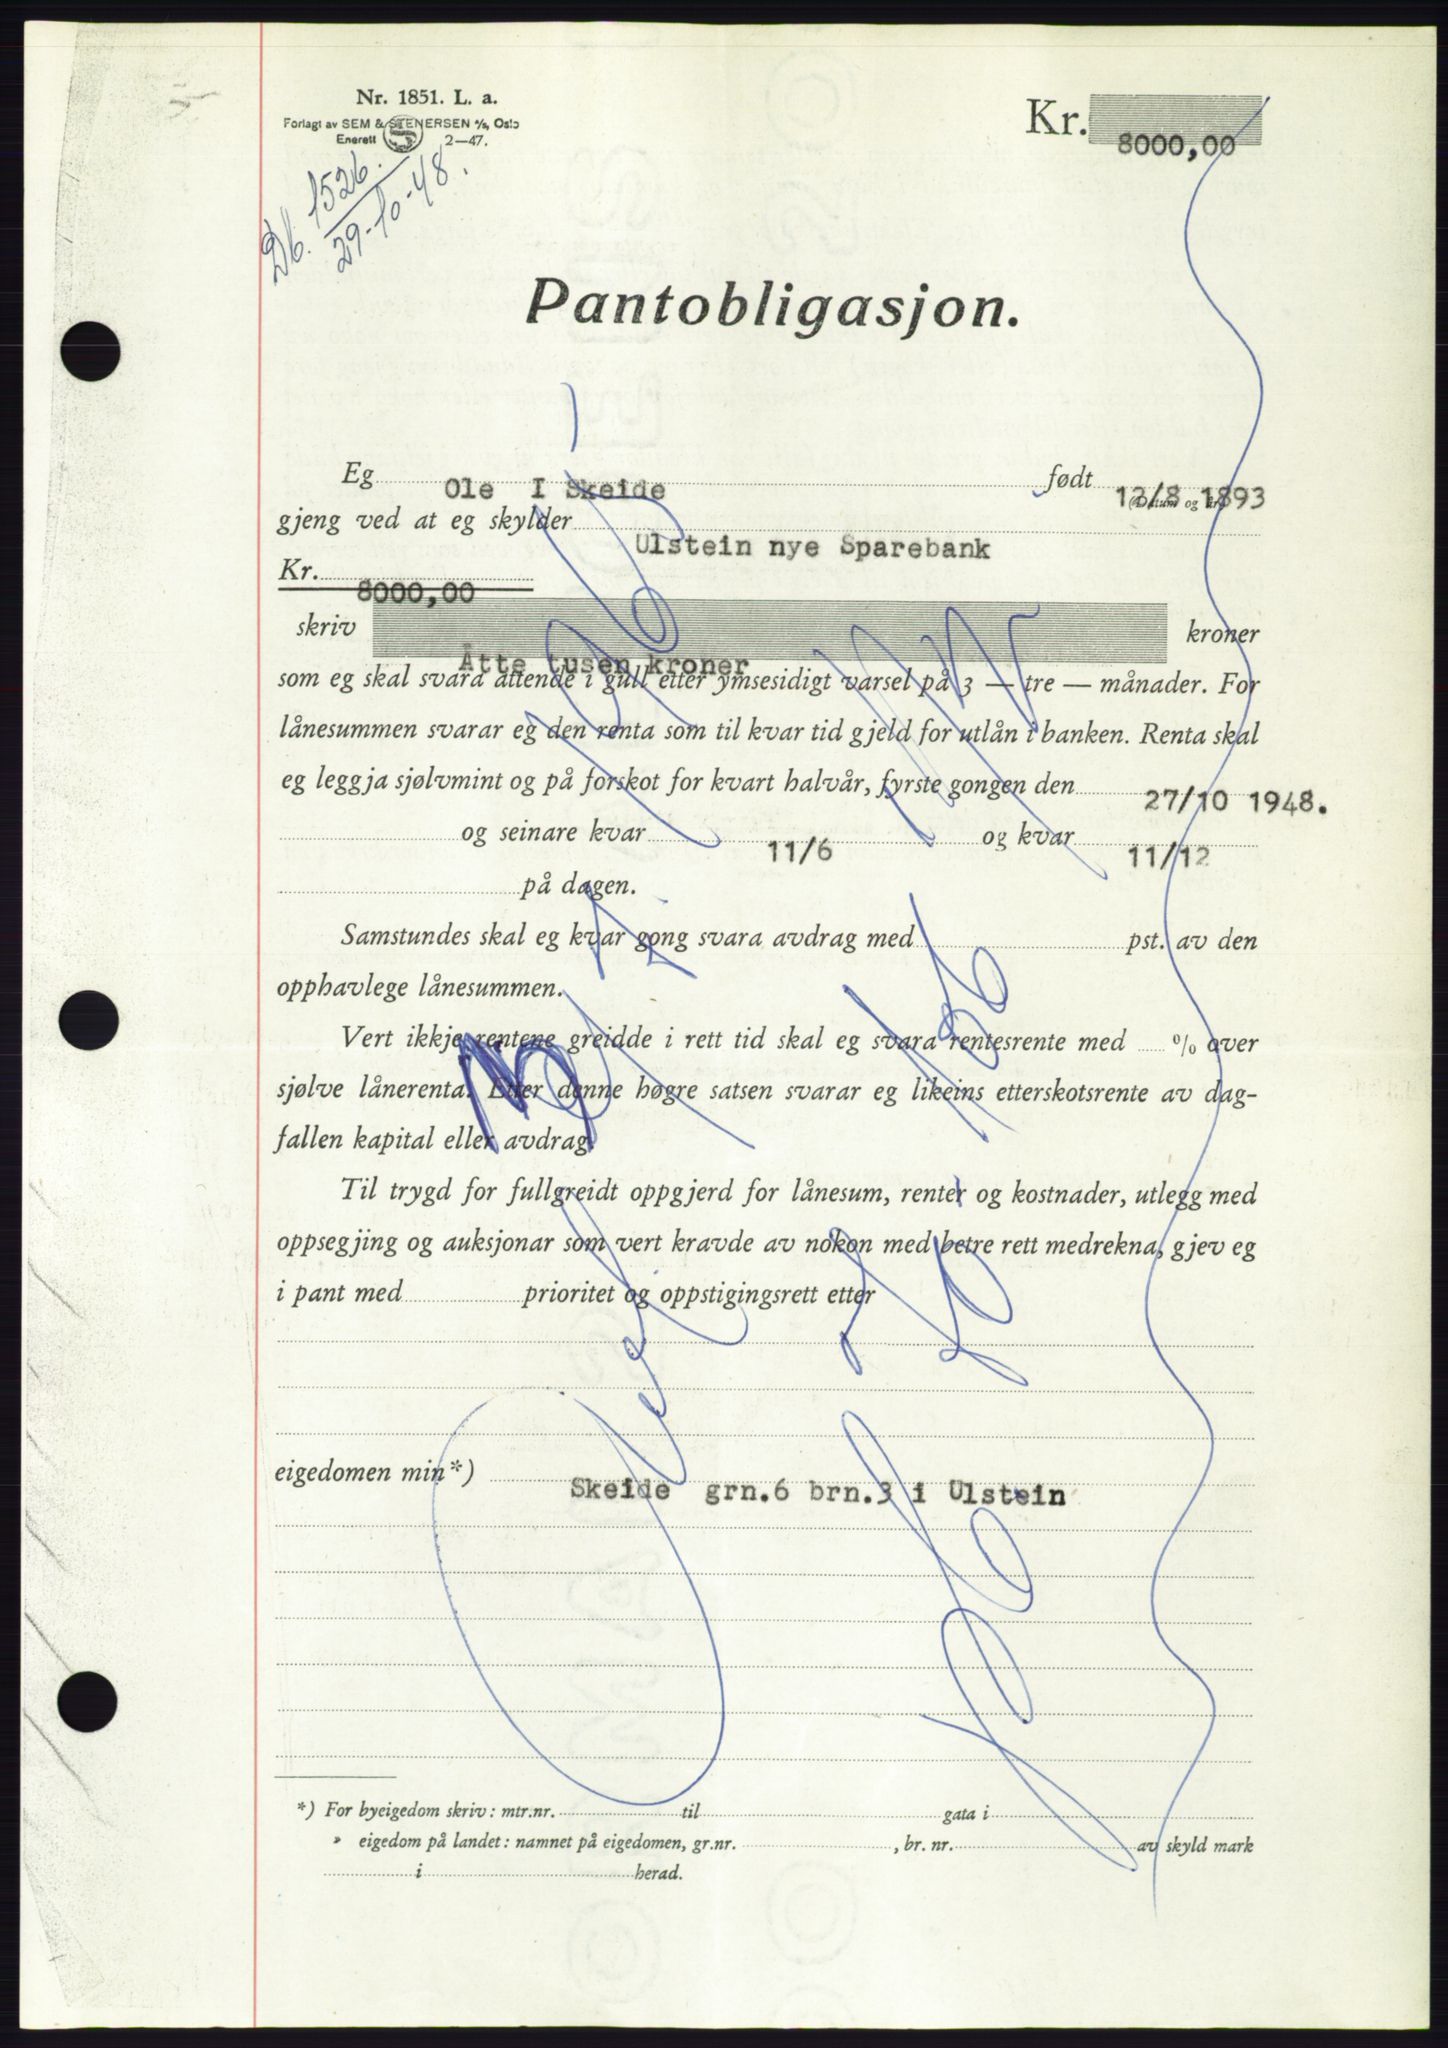 Nr. 1851. L. a.
Forlagt av SEM & STENERSEN A/S, Oslo
Enerett 2—47.
Db. 1526.
29-10-48.
Kr. 8000,00
Pantobligasjon.
Eg Ole I Skeide født 1893
(Datum og år)
gjeng ved at eg skylder Ulstein nye Sparebank
Kr. 8000,00
skriv Åtte tusen kroner kroner
som eg skal svara attende i gull etter ymsesidigt varsel på 3 — tre — månader. For
lånesummen svarar eg den renta som til kvar tid gjeld for utlån i banken. Renta skal
eg leggja sjølvmint og på forskot for kvart halvår, fyrste gongen den 27/10 1948.
og seinare kvar 11/6 og kvar 11/12
på dagen.
Samstundes skal eg kvar gong svara avdrag med pst. av den
opphavlege lånesummen.
Vert ikkje rentene greidde i rett tid skal eg svara rentesrente med % over
sjølve lånerenta. Etter denne høgre satsen svarar eg likeins etterskotsrente av dag-
fallen kapital eller avdrag.
Til trygd for fullgreidt oppgjerd for lånesum, renter og kostnader, utlegg med
oppsegjing og auksjonar som vert kravde av nokon med betre rett medrekna, gjev eg
i pant med prioritet og oppstigingsrett etter
eigedomen min*) Skeide grn.6 brn.3 i Ulstein
*) For byeigedom skriv: mtr.nr. til gata i
» eigedom på landet: namnet på eigedomen, gr.nr. , br. nr. av skyld mark
i herad.